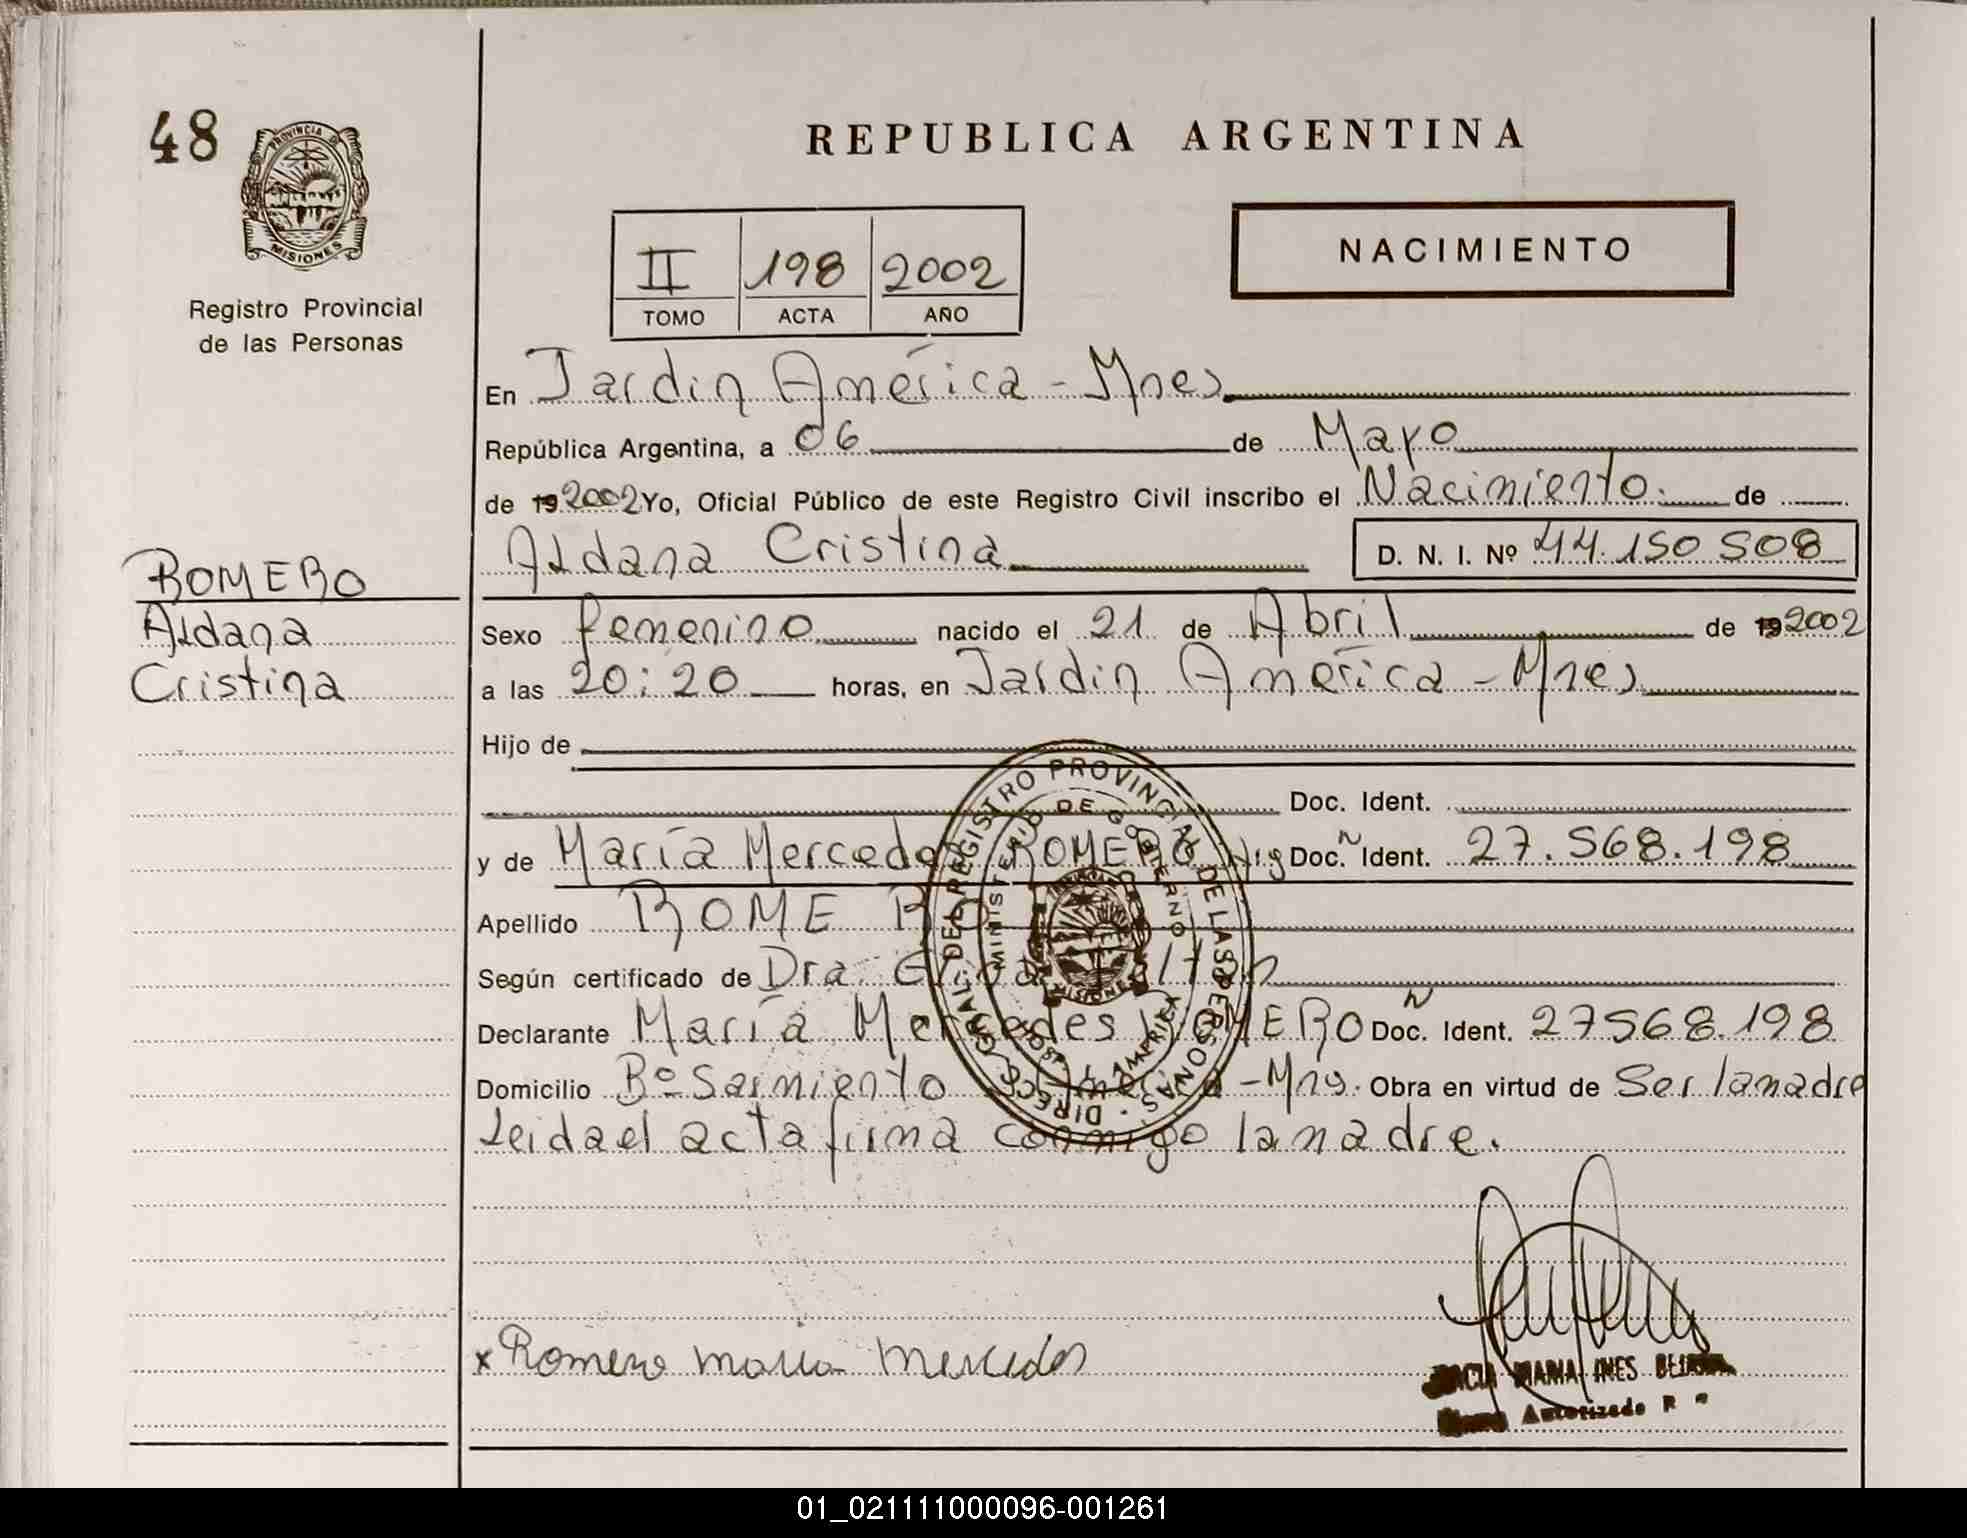 48
PROVINCIA DE
MISIONES
Registro Provincial
de las Personas
REPUBLICA ARGENTINA
II 198 2002
TOMO ACTA AÑO
NACIMIENTO
En Jardin América - Mnes
República Argentina, a 06 de Mayo
de 19 2002 Yo, Oficial Público de este Registro Civil inscribo el Nacimiento. de
Aldana Cristina D. N. I. Nº 44.150 508
ROMERO
Aldana
Cristina
Sexo femenino nacido el 21 de Abril de 19 2002
a las 20:20 horas, en Jardin América - Mnes
Hijo de
Doc. Ident.
y de María Mercedes ROMERO Doc. Ident. 27.568.198
Apellido ROMERO
Según certificado de Dra.
Declarante María Mercedes ROMERO Doc. Ident. 27568.198
Domicilio Bº Sarmiento - Mns. Obra en virtud de Ser la madre
Leida el acta firma conmigo la madre.
DIRECC. GRAL. DEL REGISTRO PROVINCIAL DE LAS PERSONAS
MINISTERIO DE GOBIERNO
MISIONES
x Romero maria mercedes
MARIA INES
Autorizada
01_021111000096-001261